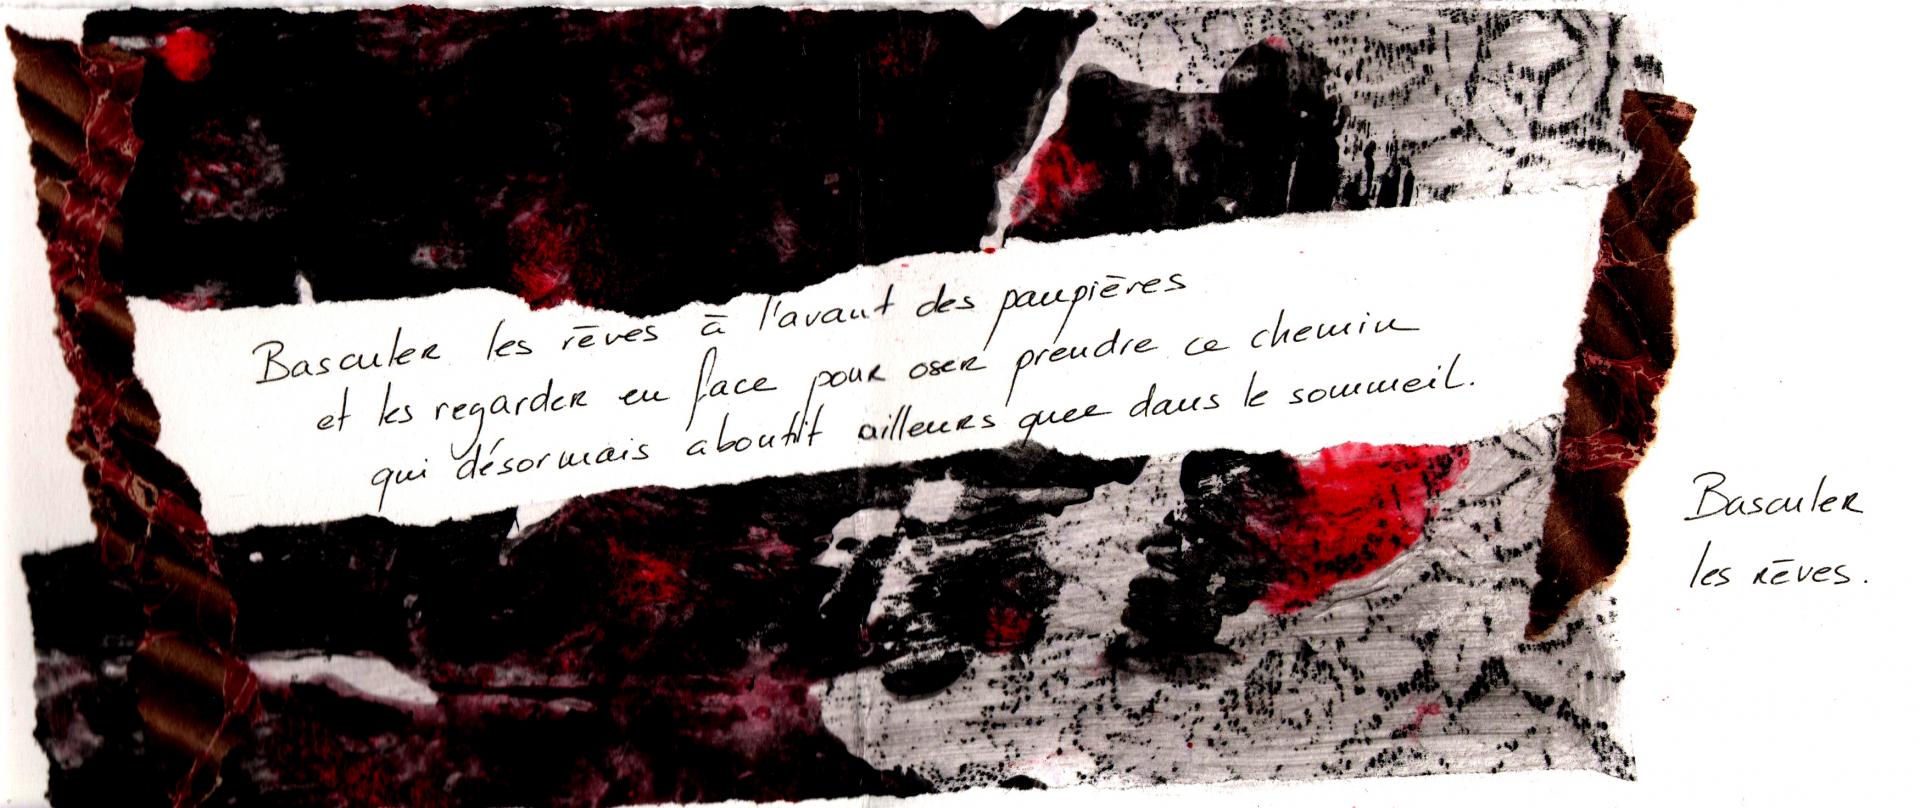 Basculer les rêves à l'avant des paupières
et les regarder en face pour oser prendre ce chemin
qui désormais aboutit ailleurs que dans le sommeil.
Basculer
les rêves.